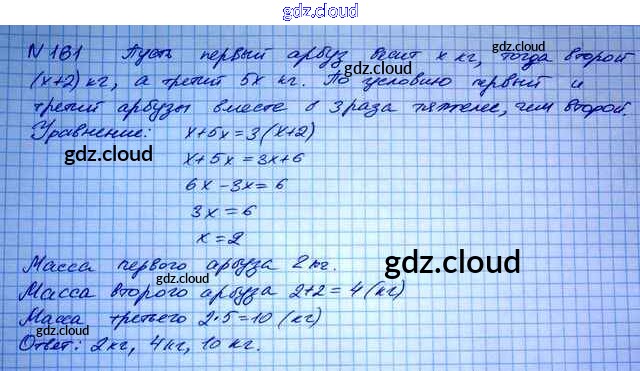 gdz.cloud
N 161 Пусть первый арбуз весит x кг, тогда второй
(x+2) кг, а третий 5x кг. По условию первый и
третий арбузы вместе в 3 раза тяжелее, чем второй.
Уравнение: x+5x=3(x+2)
gdz.cloud
gdz.cloud
x+5x=3x+6
6x-3x=6
3x=6
x=2
Масса первого арбуза 2 кг.
gdz.cloud
Масса второго арбуза 2+2=4 (кг)
gdz.cloud
Масса третьего 2·5=10 (кг)
Ответ: 2кг, 4кг, 10 кг.